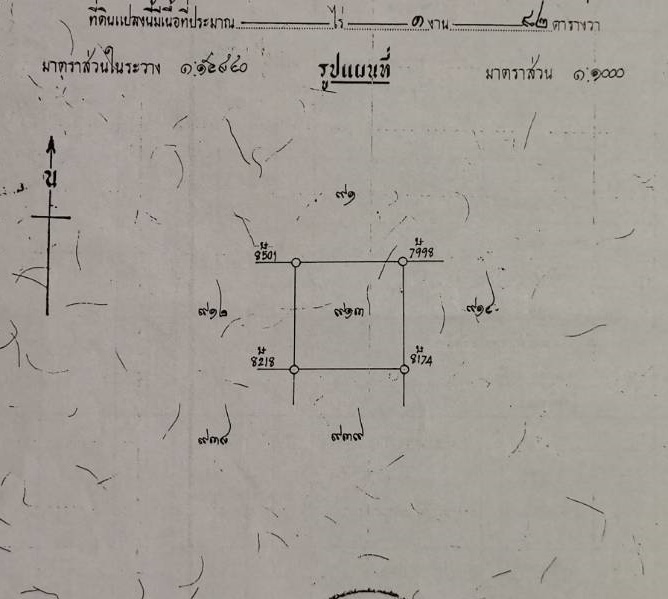 ที่ดินแปลงนี้มีเนื้อที่ประมาณ ไร่ ๑ งาน ๘๒ ตารางวา
มาตราส่วนในระวาง ๑:๑๕๘๔๐ รูปแผนที่ มาตราส่วน ๑:๑๐๐๐
น
๙๑
บ
8501
บ
7998
๙๑๒
๙๑๓
๙๑๔
บ
8218
บ
8174
๙๓๘
๙๓๙